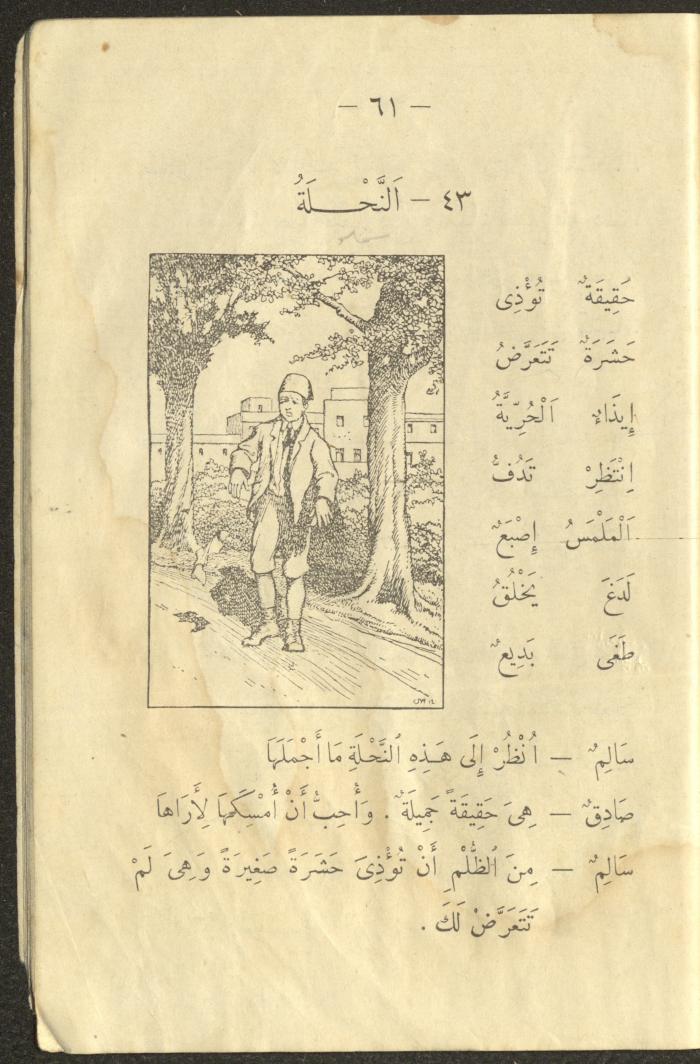 — ٦١ —
٤٣ — اَلنَّحْـــلَةُ
حَقِيقَةٌ تُؤْذِى
حَشَرَةٌ تَتَعَرَّضُ
إِيذَاءٌ اَلْحُرِّيَّةُ
اِنْتَظِرْ تَدُفُّ
اَلْمَلْمَسُ إِصْبَعٌ
لَدَغَ يَخْلُقُ
طَغَى بَدِيعٌ
سَالِمٌ — اُنْظُرْ إِلَى هَـذِهِ ٱلنَّحْلَةِ مَا أَجْمَلَهَا
صَادِقٌ — هِىَ حَقِيقَةً جَمِيلَةٌ . وَأُحِبُّ أَنْ أُمْسِكَهَا لِأَرَاهَا
سَالِمٌ — مِنَ ٱلظُّلْمِ أَنْ تُؤْذِىَ حَشَرَةً صَغِيرَةً وَهِىَ لَمْ
تَتَعَرَّضْ لَكَ .